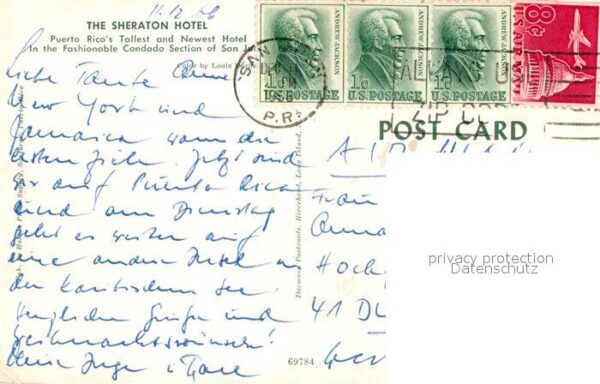 11.12.66
THE SHERATON HOTEL
Puerto Rico's Tallest and Newest Hotel
In the Fashionable Condado Section of San
Color by Louis
Liebe Tante Anna
New York und
Jamaica waren die
ersten Ziele. Jetzt sind
wir auf Puerto Rico
und am Dienstag
geht es weiter auf
eine andere Insel in
der karibischen See.
Herzliche Grüße und
Weihnachtswünsche!
Deine Inge u
ANDREW JACKSON
1c
U.S. POSTAGE
ANDREW JACKSON
1c
U.S. POSTAGE
ANDREW JACKSON
U.S. POSTAGE
U.S. AIR MAIL
8c
SAN
DEC
PM
1966
P.R.
ALWAYS USE
ZIP CODE
POST CARD
AIR MAIL
Frau
Anna
Hoch
41 DU
privacy protection
Datenschutz
Dormand Postcards, Riverhead, Long Island,
69784